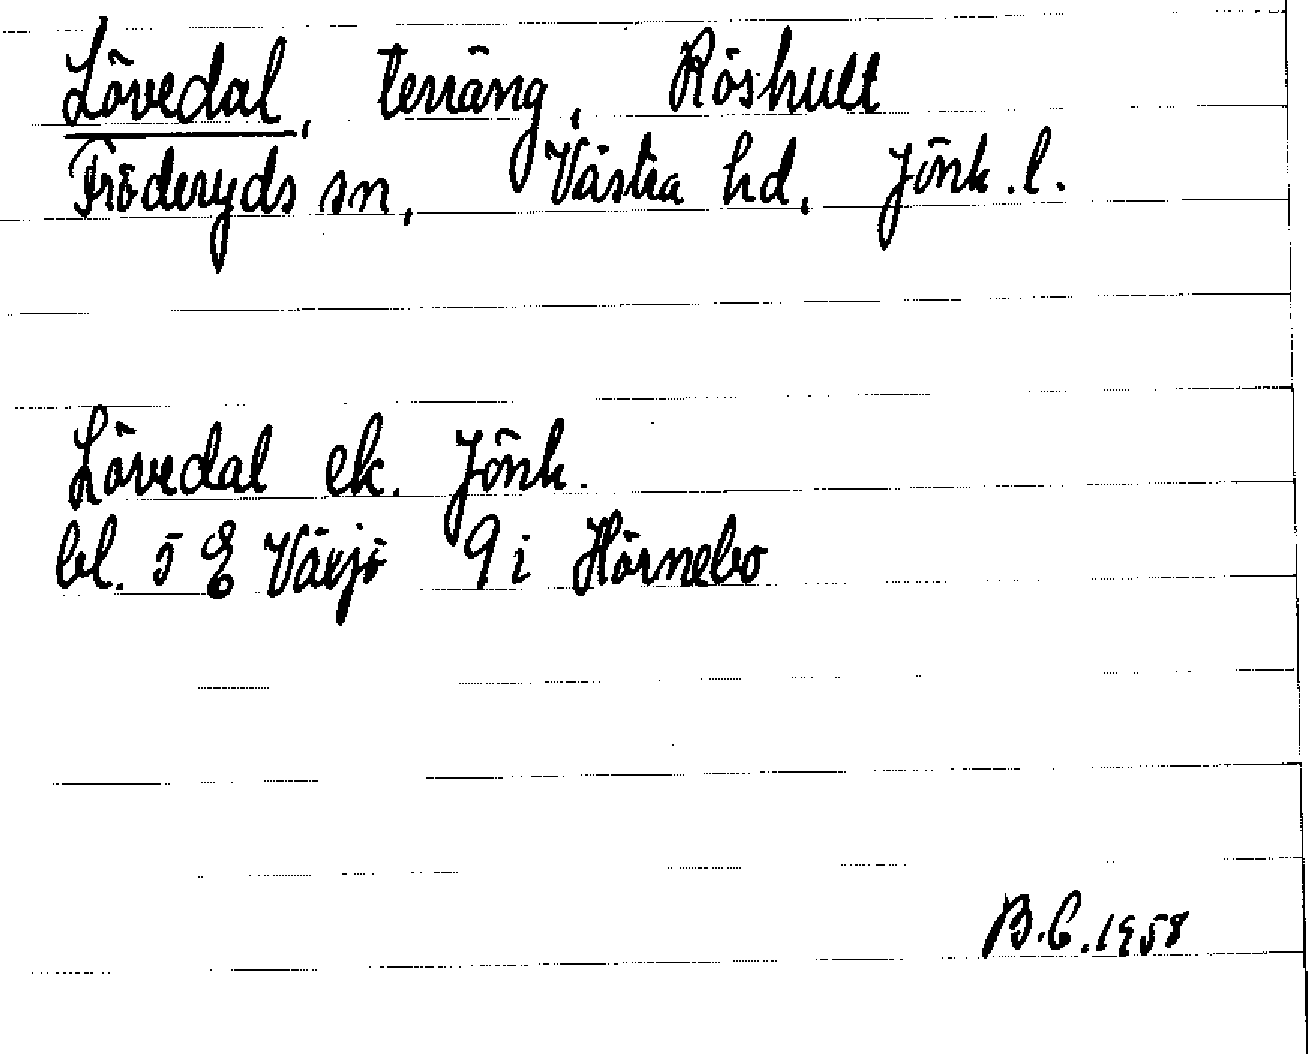 Lövedal, terräng, Röshult
Fröderyds sn, Västra hd, Jönk.l.
Lövedal ek. Jönk.
bl. 5 E Växjö 9 i Hörnebo
B.C. 1958